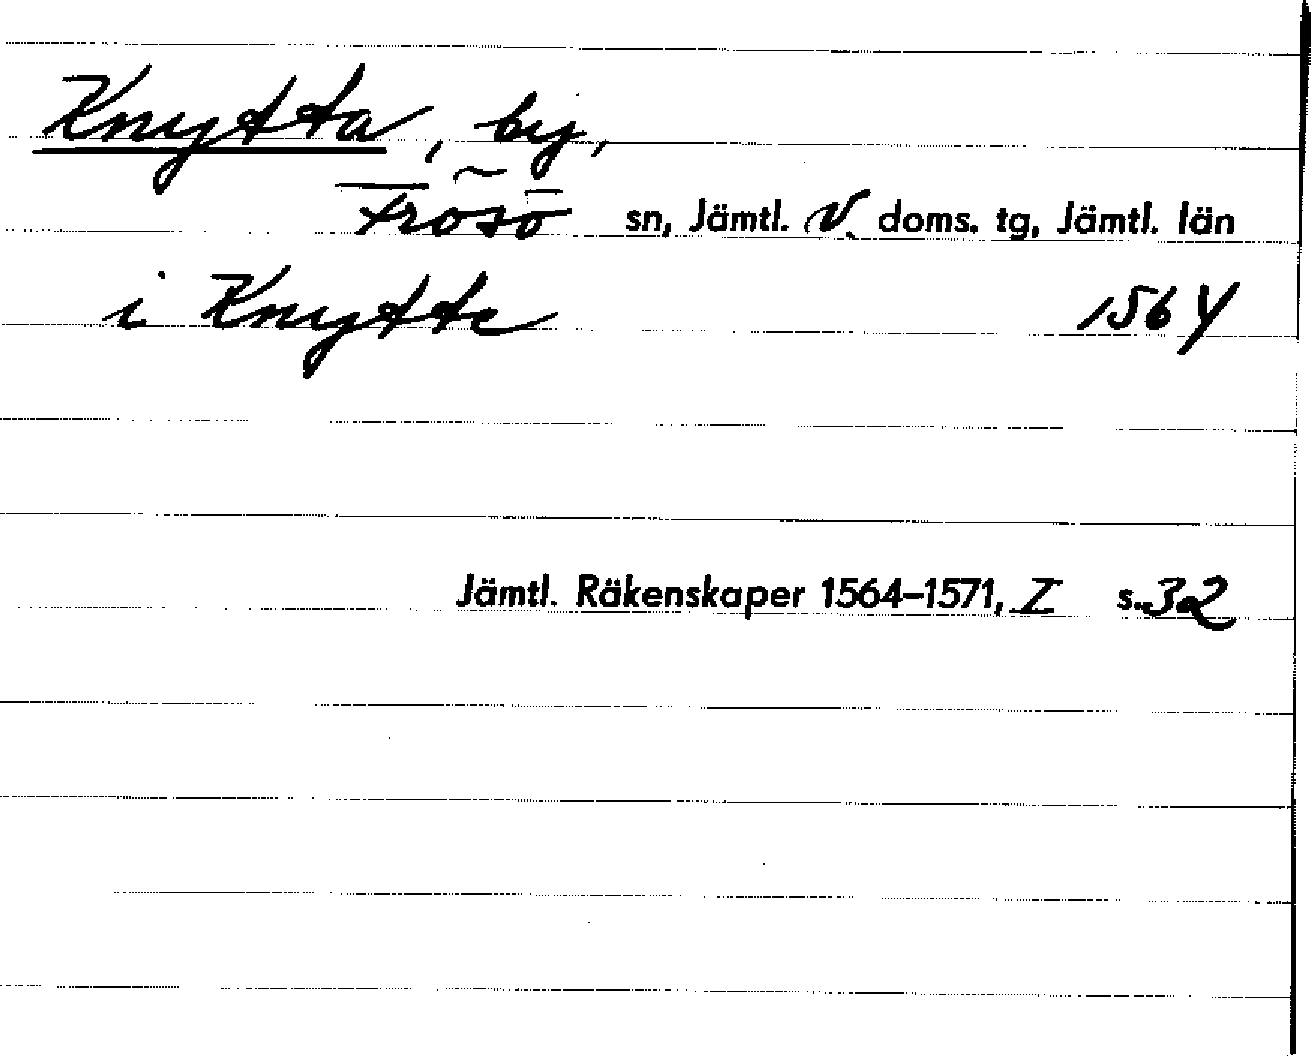 Knytta, by,
Frösö sn, Jämtl. V. doms. tg, Jämtl. län
i Knytte 1564
Jämtl. Räkenskaper 1564–1571, I s. 32